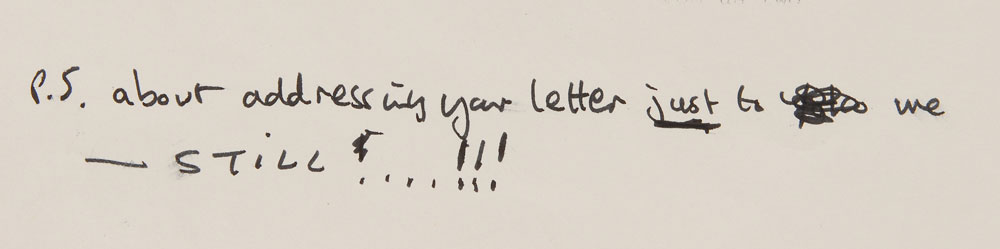 P.S. about addressing your letter just to me
— STILL !....!!!